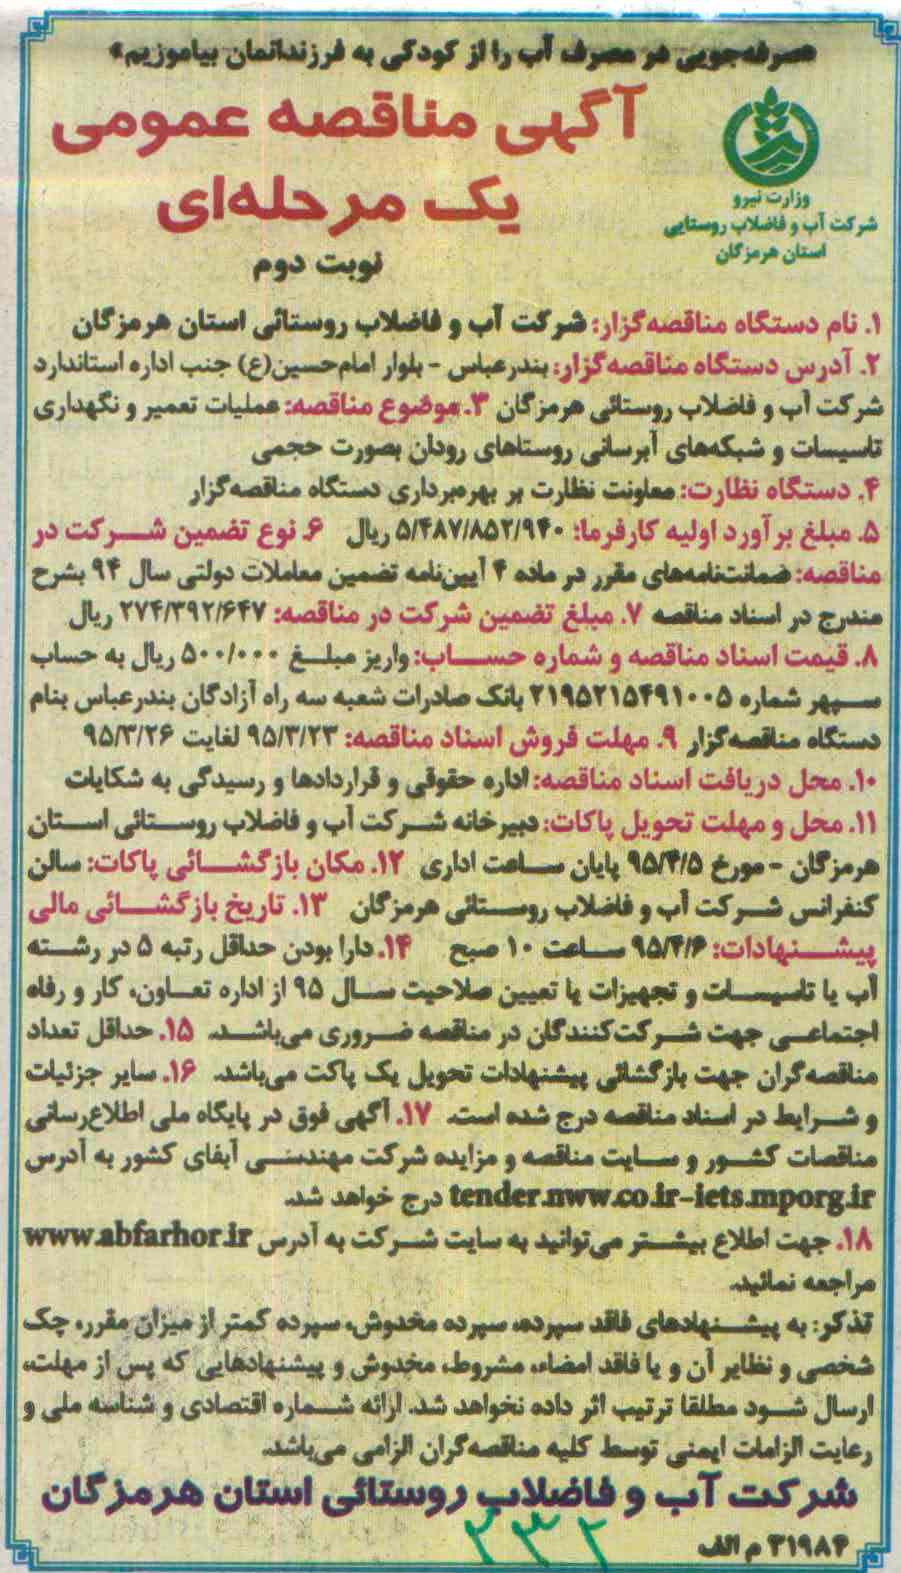 صرفه‌جویی در مصرف آب را از کودکی به فرزندانمان بیاموزیم»
آگهی مناقصه عمومی
یک مرحله‌ای
نوبت دوم
وزارت نیرو
شرکت آب و فاضلاب روستایی
استان هرمزگان
۱. نام دستگاه مناقصه‌گزار: شرکت آب و فاضلاب روستائی استان هرمزگان
۲. آدرس دستگاه مناقصه‌گزار: بندرعباس - بلوار امام‌حسین(ع) جنب اداره استاندارد
شرکت آب و فاضلاب روستائی هرمزگان ۳. موضوع مناقصه: عملیات تعمیر و نگهداری
تاسیسات و شبکه‌های آبرسانی روستاهای رودان بصورت حجمی
۴. دستگاه نظارت: معاونت نظارت بر بهره‌برداری دستگاه مناقصه‌گزار
۵. مبلغ برآورد اولیه کارفرما: ۵/۴۸۷/۸۵۲/۹۴۰ ریال ۶. نوع تضمین شرکت در
مناقصه: ضمانت‌نامه‌های مقرر در ماده ۴ آیین‌نامه تضمین معاملات دولتی سال ۹۴ بشرح
مندرج در اسناد مناقصه ۷. مبلغ تضمین شرکت در مناقصه: ۲۷۴/۳۹۲/۶۴۷ ریال
۸. قیمت اسناد مناقصه و شماره حساب: واریز مبلغ ۵۰۰/۰۰۰ ریال به حساب
سپهر شماره ۲۱۹۵۲۱۵۴۹۱۰۰۵ بانک صادرات شعبه سه راه آزادگان بندرعباس بنام
دستگاه مناقصه‌گزار ۹. مهلت فروش اسناد مناقصه: ۹۵/۳/۲۳ لغایت ۹۵/۳/۲۶
۱۰. محل دریافت اسناد مناقصه: اداره حقوقی و قراردادها و رسیدگی به شکایات
۱۱. محل و مهلت تحویل پاکات: دبیرخانه شرکت آب و فاضلاب روستائی استان
هرمزگان - مورخ ۹۵/۴/۵ پایان ساعت اداری ۱۲. مکان بازگشائی پاکات: سالن
کنفرانس شرکت آب و فاضلاب روستائی هرمزگان ۱۳. تاریخ بازگشائی مالی
پیشنهادات: ۹۵/۴/۶ ساعت ۱۰ صبح ۱۴. دارا بودن حداقل رتبه ۵ در رشته
آب یا تاسیسات و تجهیزات یا تعیین صلاحیت سال ۹۵ از اداره تعاون، کار و رفاه
اجتماعی جهت شرکت‌کنندگان در مناقصه ضروری می‌باشد. ۱۵. حداقل تعداد
مناقصه‌گران جهت بازگشائی پیشنهادات تحویل یک پاکت می‌باشد. ۱۶. سایر جزئیات
و شرایط در اسناد مناقصه درج شده است. ۱۷. آگهی فوق در پایگاه ملی اطلاع‌رسانی
مناقصات کشور و سایت مناقصه و مزایده شرکت مهندسی آبفای کشور به آدرس
tender.nww.co.ir-iets.mporg.ir درج خواهد شد.
۱۸. جهت اطلاع بیشتر می‌توانید به سایت شرکت به آدرس www.abfarhor.ir
مراجعه نمائید.
تذکر: به پیشنهادهای فاقد سپرده، سپرده مخدوش، سپرده کمتر از میزان مقرر، چک
شخصی و نظایر آن و یا فاقد امضاء، مشروط، مخدوش و پیشنهادهایی که پس از مهلت،
ارسال شود مطلقا ترتیب اثر داده نخواهد شد. ارائه شماره اقتصادی و شناسه ملی و
رعایت الزامات ایمنی توسط کلیه مناقصه‌گران الزامی می‌باشد.
شرکت آب و فاضلاب روستائی استان هرمزگان
۳۱۹۸۴ م الف